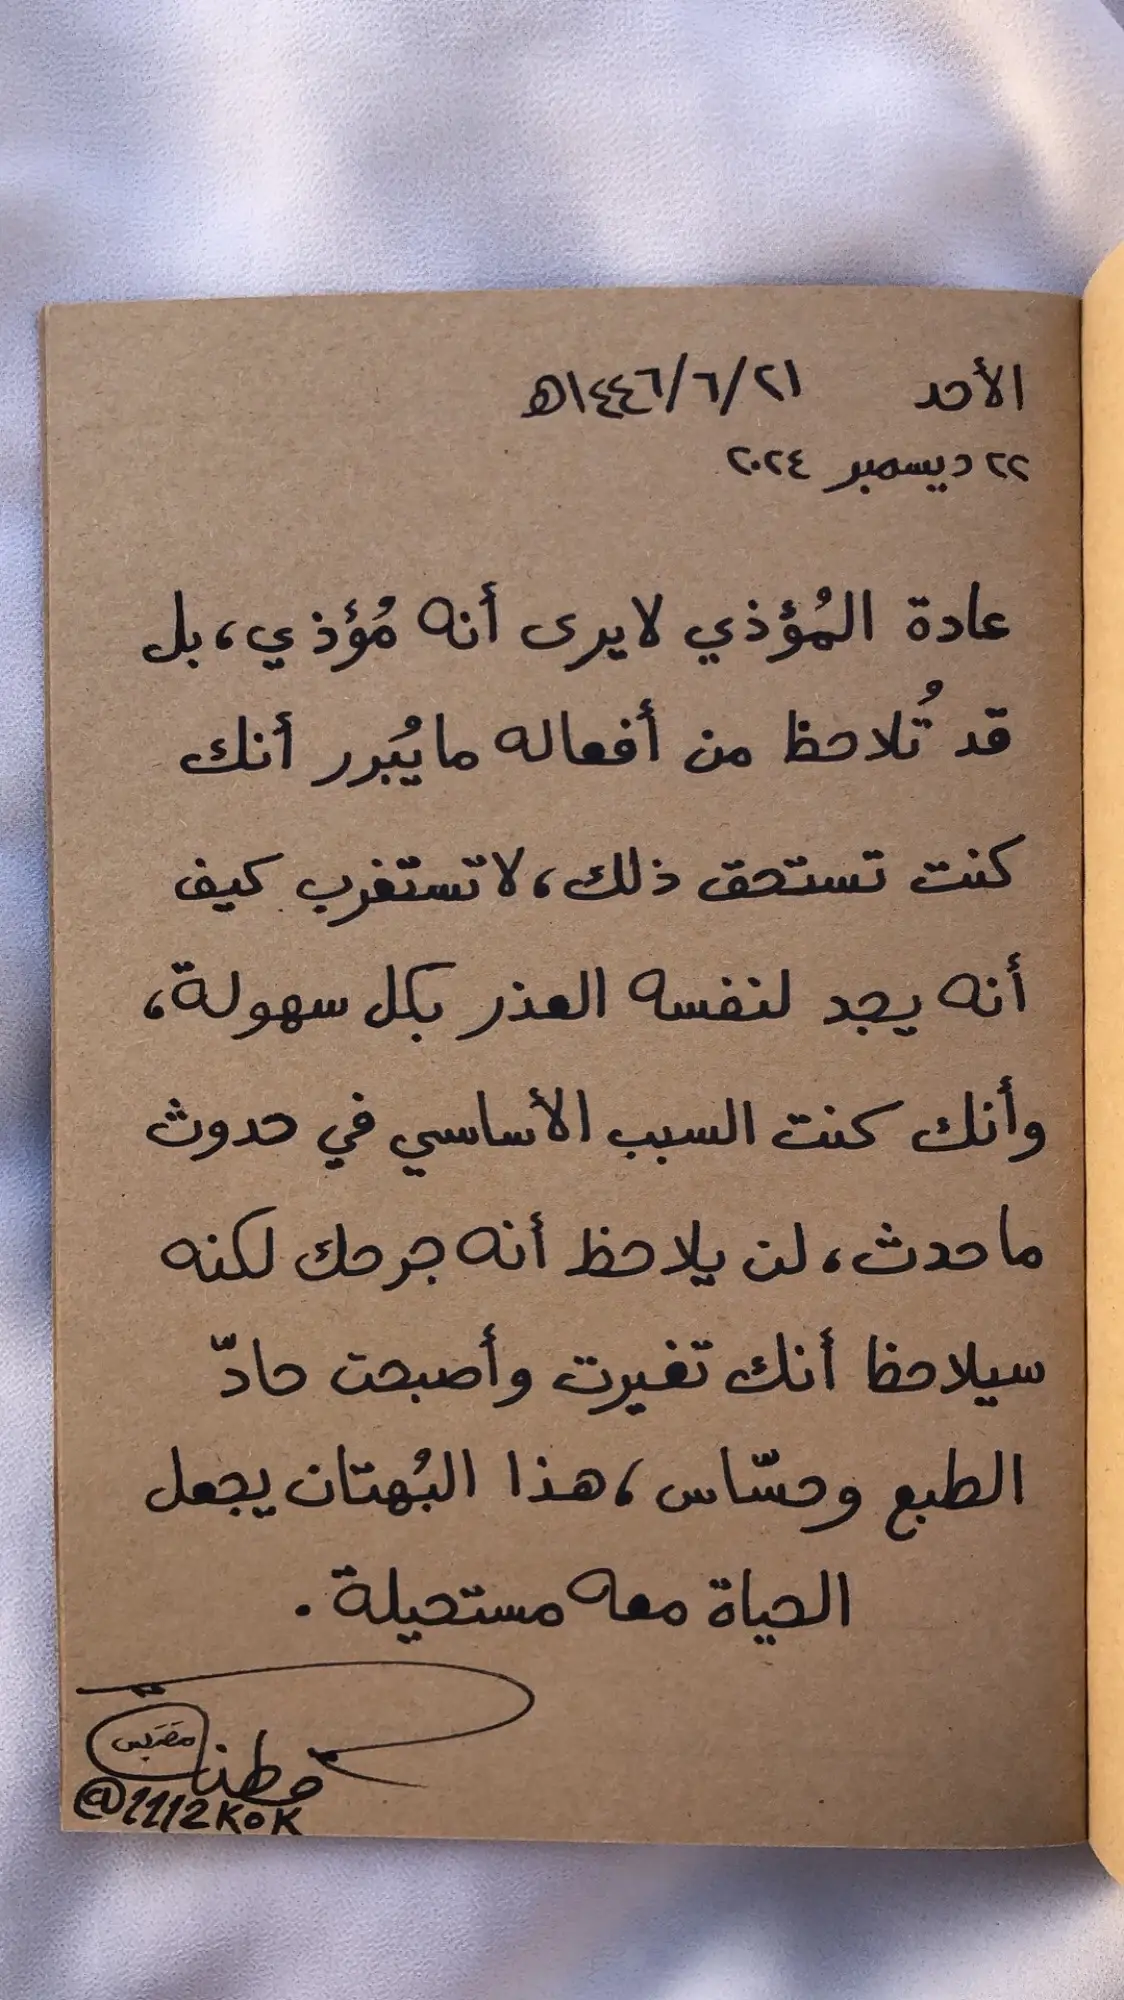 الأحد ٢١/٦/١٤٤٦هـ
٢٢ ديسمبر ٢٠٢٤
عادة المُؤذي لايرى أنه مُؤذي، بل
قد تُلاحظ من أفعاله مايُبرر أنك
كنت تستحق ذلك، لاتستغرب كيف
أنه يجد لنفسه العذر بكل سهولة،
وأنك كنت السبب الأساسي في حدوث
ماحدث، لن يلاحظ أنه جرحك لكنه
سيلاحظ أنك تغيرت وأصبحت حادّ
الطبع وحسّاس، هذا البُهتان يجعل
الحياة معه مستحيلة.
@1112KOK